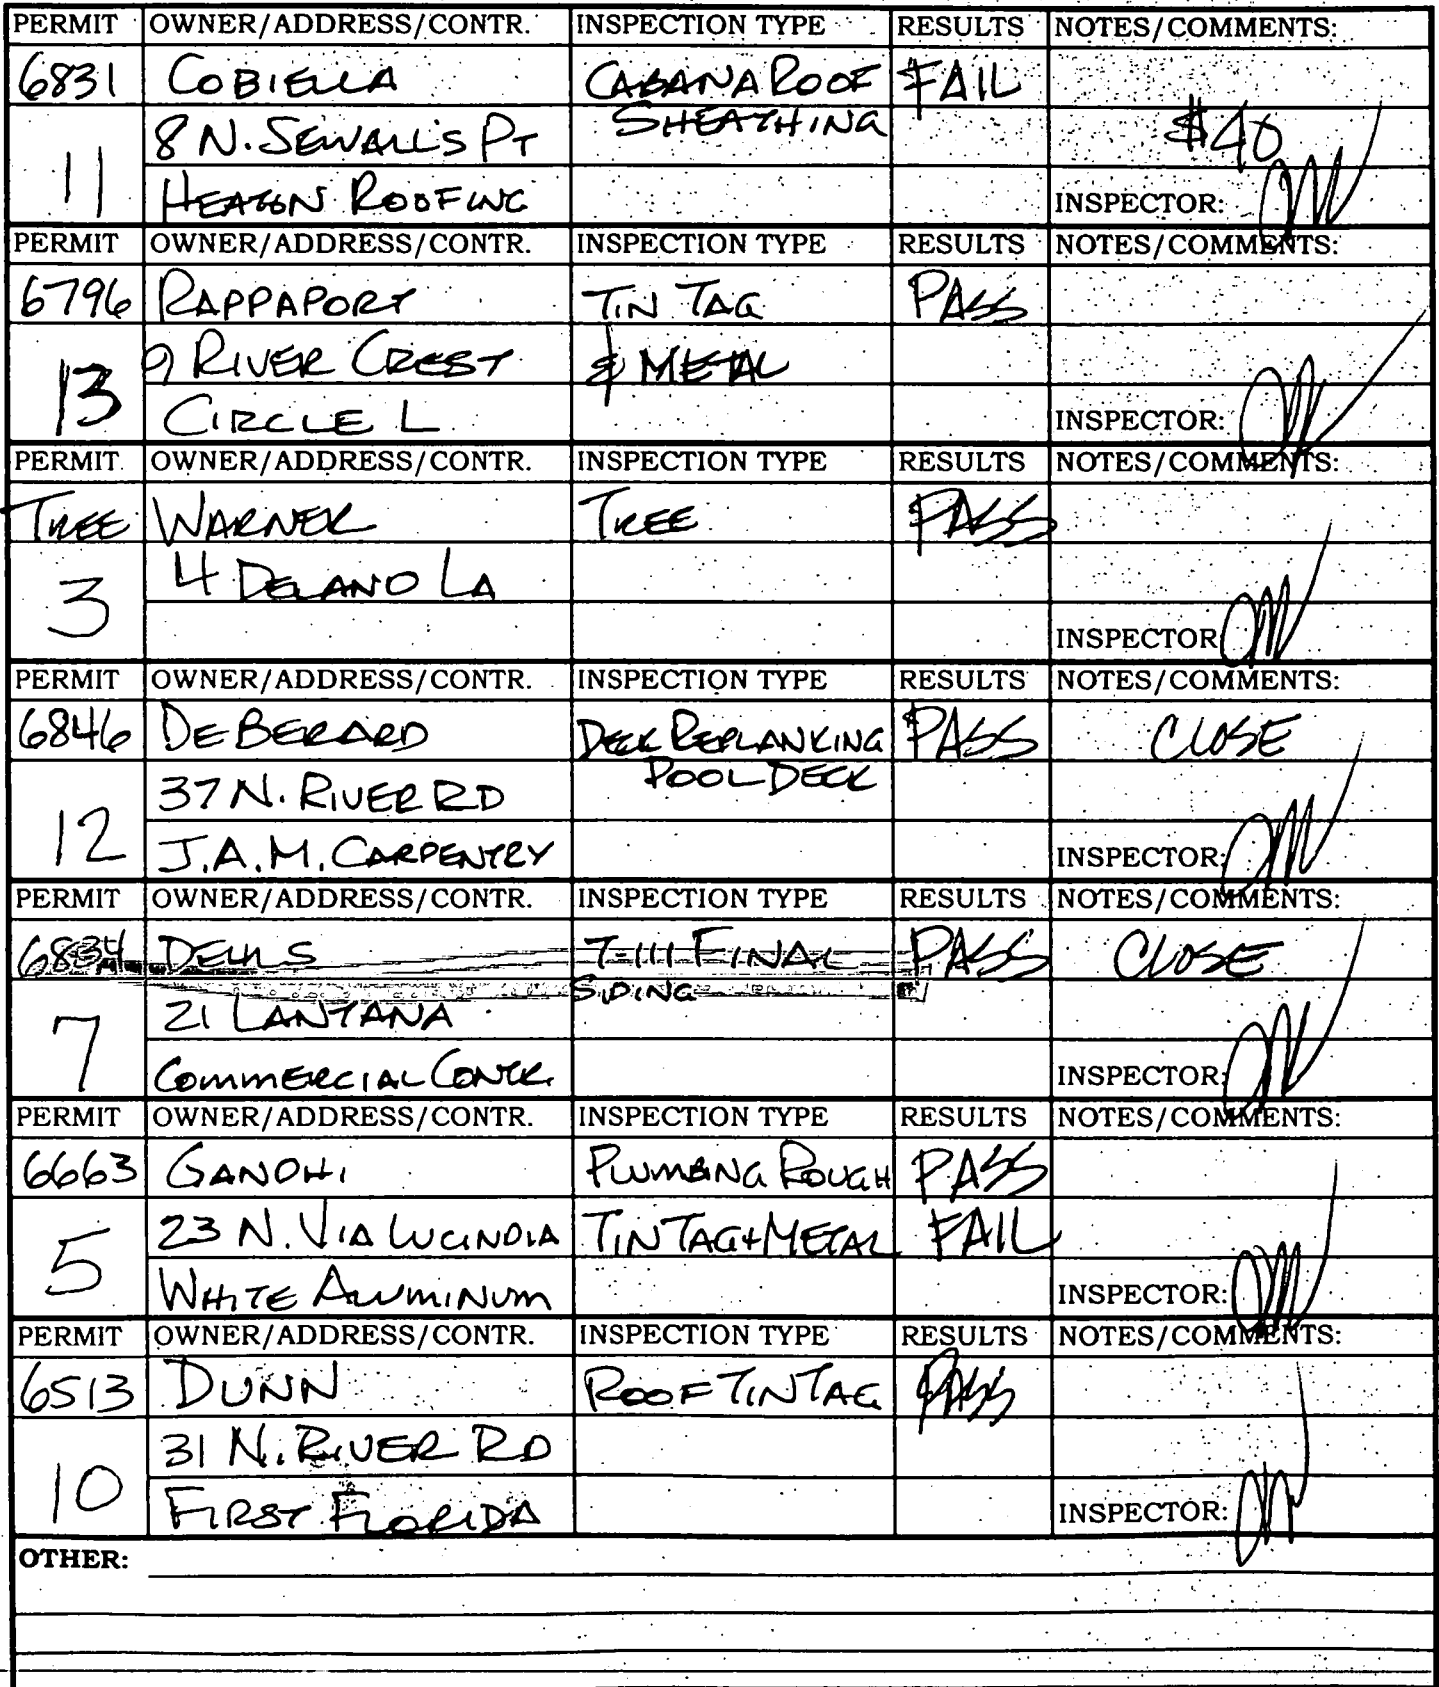 PERMIT OWNER/ADDRESS/CONTR. INSPECTION TYPE RESULTS NOTES/COMMENTS:
6831 COBIELLA CABANA ROOF FAIL
SHEATHING
11 8 N. SEWALL'S PT $40
HEATON ROOFING INSPECTOR:
PERMIT OWNER/ADDRESS/CONTR. INSPECTION TYPE RESULTS NOTES/COMMENTS:
6796 RAPPAPORT TIN TAG PASS
13 9 RIVER CREST & METAL
CIRCLE L INSPECTOR:
PERMIT OWNER/ADDRESS/CONTR. INSPECTION TYPE RESULTS NOTES/COMMENTS:
TREE WARNER TREE PASS
3 4 DELANO LA
INSPECTOR
PERMIT OWNER/ADDRESS/CONTR. INSPECTION TYPE RESULTS NOTES/COMMENTS:
6846 DEBERARD DECK REPLANKING PASS CLOSE
POOL DECK
12 37 N. RIVER RD
J.A.M. CARPENTRY INSPECTOR:
PERMIT OWNER/ADDRESS/CONTR. INSPECTION TYPE RESULTS NOTES/COMMENTS:
6834 T-111 FINAL PASS CLOSE
SIDING
7 21 LANTANA
COMMERCIAL CONTR. INSPECTOR:
PERMIT OWNER/ADDRESS/CONTR. INSPECTION TYPE RESULTS NOTES/COMMENTS:
6663 GANDHI PLUMBING ROUGH PASS
5 23 N. VIA LUCINDIA TIN TAG + METAL FAIL
WHITE ALUMINUM INSPECTOR:
PERMIT OWNER/ADDRESS/CONTR. INSPECTION TYPE RESULTS NOTES/COMMENTS:
6513 DUNN ROOF TIN TAG PASS
10 31 N. RIVER RD
FIRST FLORIDA INSPECTOR:
OTHER: